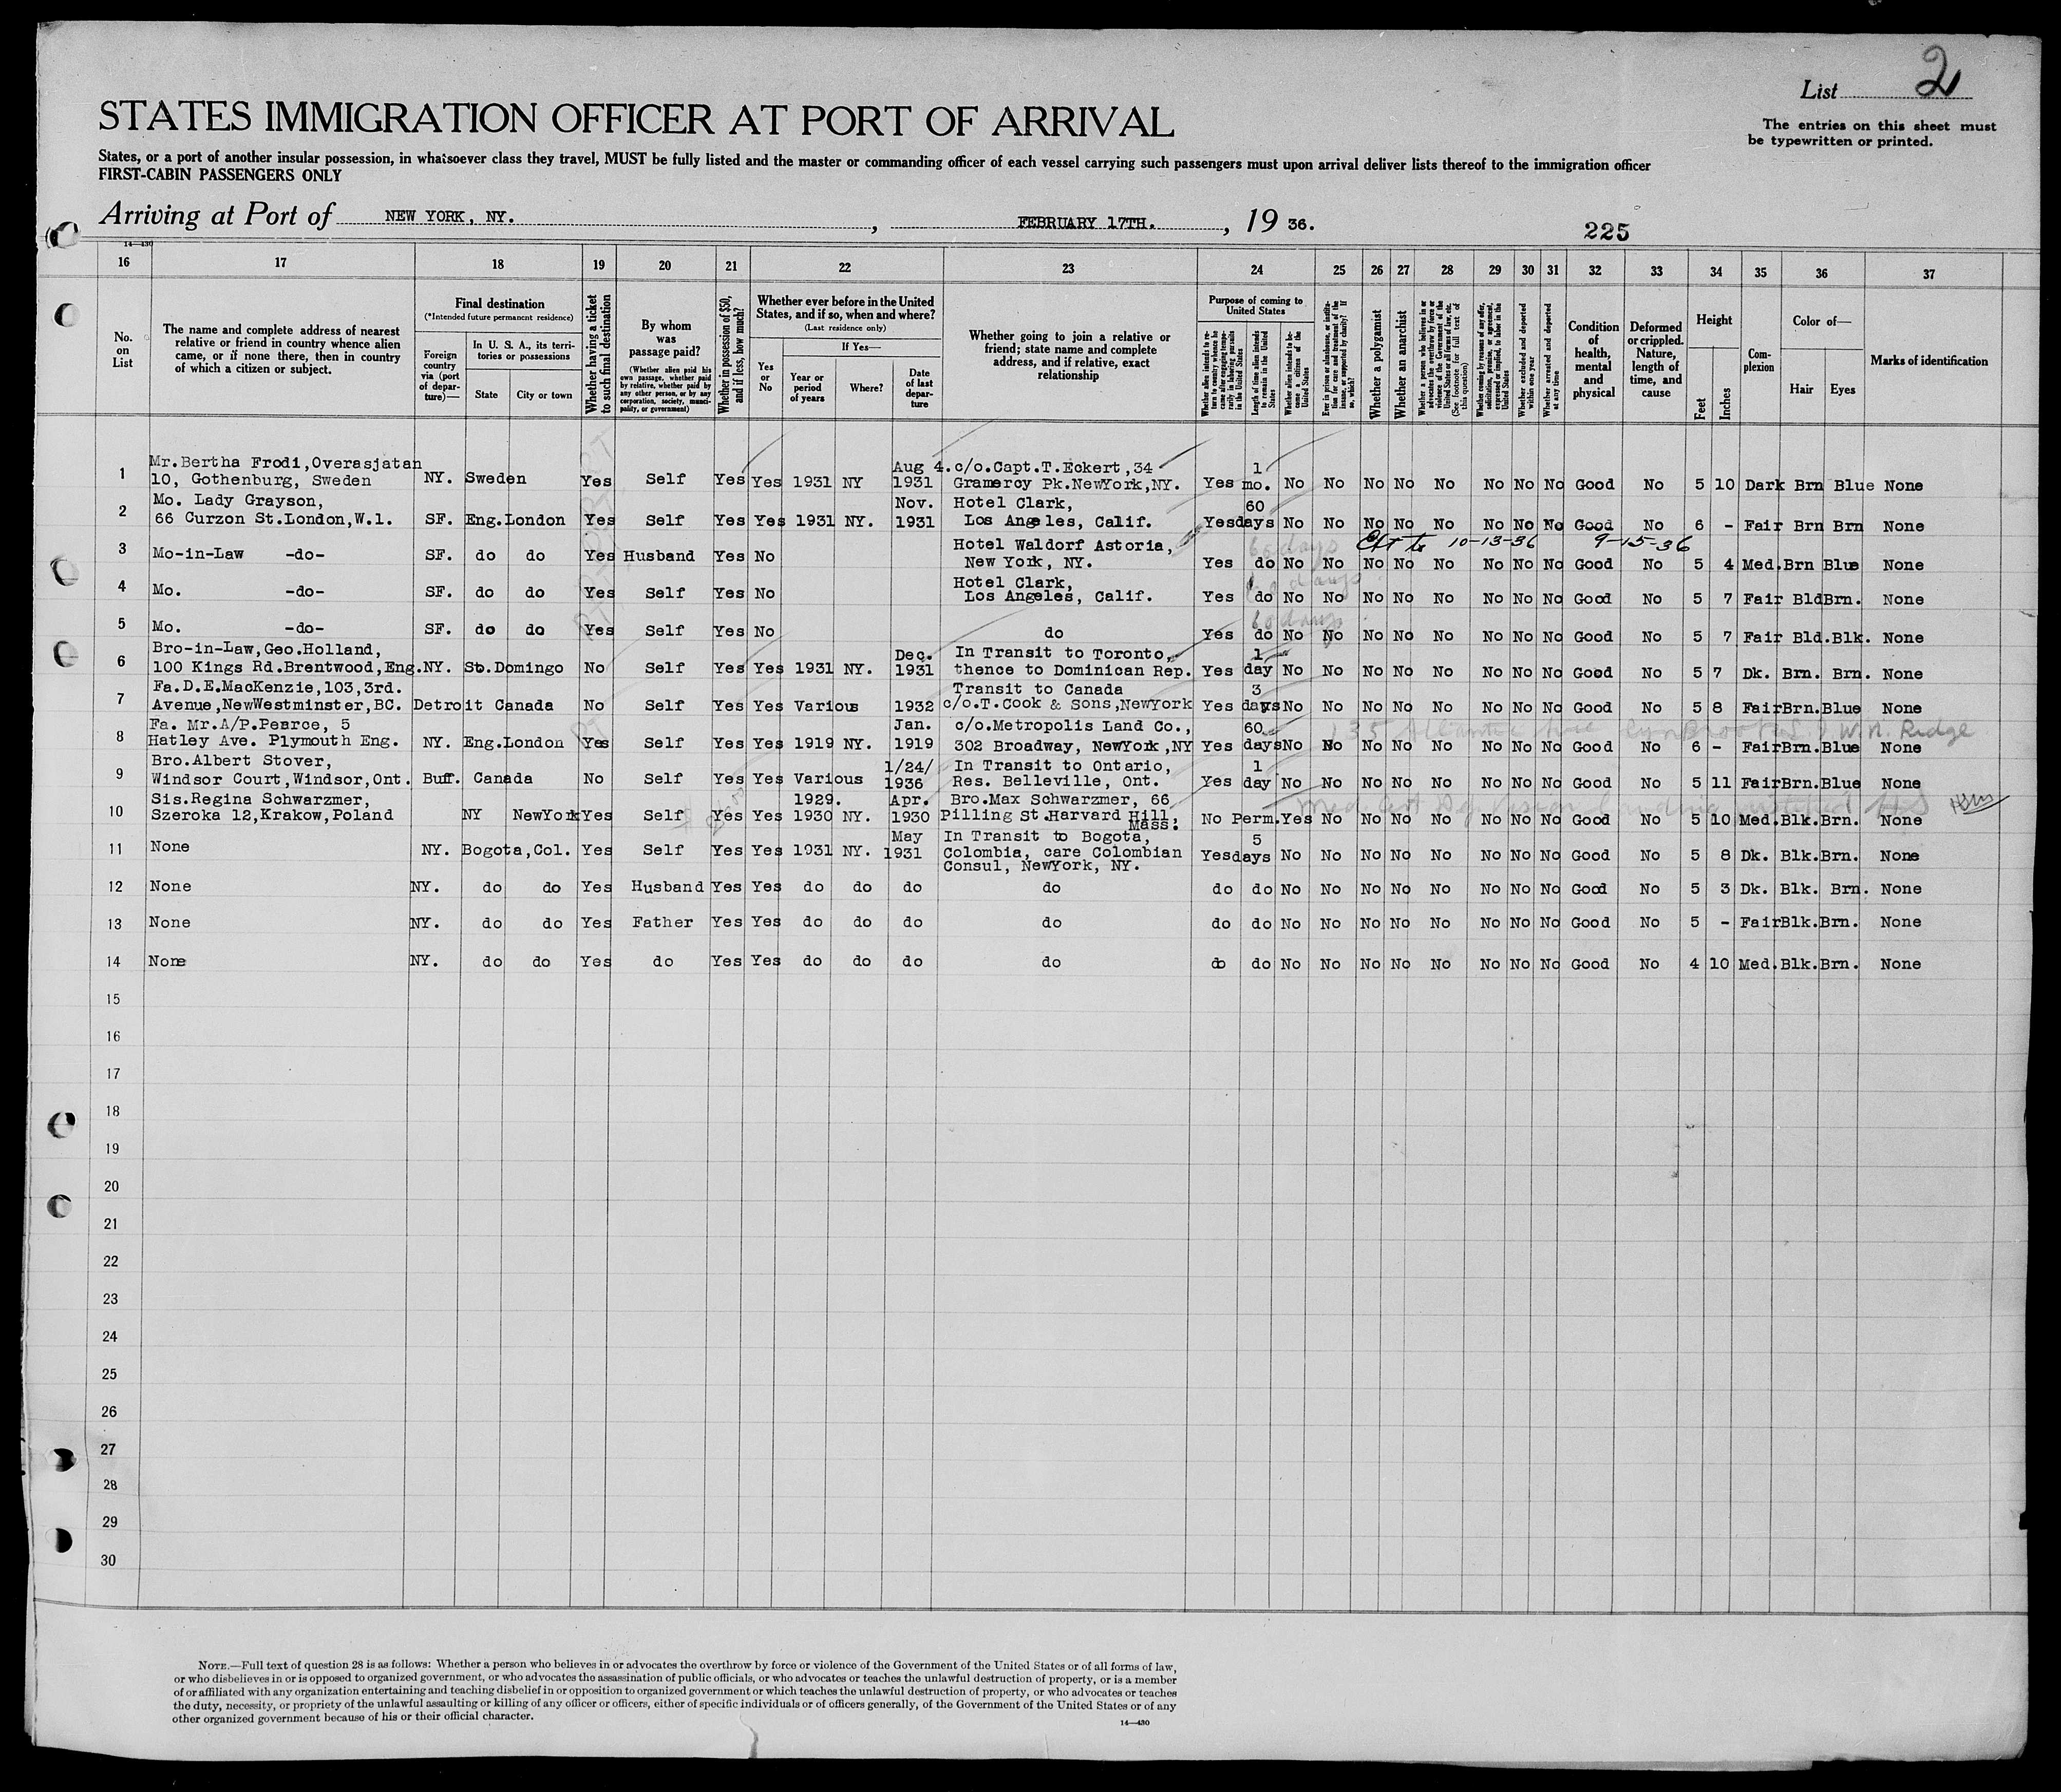 List 2
The entries on this sheet must
be typewritten or printed.
STATES IMMIGRATION OFFICER AT PORT OF ARRIVAL
States, or a port of another insular possession, in whatsoever class they travel, MUST be fully listed and the master or commanding officer of each vessel carrying such passengers must upon arrival deliver lists thereof to the immigration officer
FIRST-CABIN PASSENGERS ONLY
Arriving at Port of NEW YORK, NY. , FEBRUARY 17TH. , 19 36.
225
14—430
16 17 18 19 20 21 22 23 24 25 26 27 28 29 30 31 32 33 34 35 36 37
No.
on
List
The name and complete address of nearest
relative or friend in country whence alien
came, or if none there, then in country
of which a citizen or subject.
Final destination
(*Intended future permanent residence)
Foreign
country
via (port
of depar-
ture)—
In U. S. A., its terri-
tories or possessions
State City or town
Whether having a ticket
to such final destination
By whom
was
passage paid?
(Whether alien paid his
own passage, whether paid
by relative, whether paid by
any other person, or by any
corporation, society, munici-
pality, or government)
Whether in possession of $50,
and if less, how much?
Whether ever before in the United
States, and if so, when and where?
(Last residence only)
Yes
or
No
If Yes—
Year or
period
of years
Where?
Date
of last
depar-
ture
Whether going to join a relative or
friend; state name and complete
address, and if relative, exact
relationship
Purpose of coming to
United States
Whether alien intends to re-
turn to country whence he
came after engaging tempo-
rarily in laboring pursuits
in the United States
Length of time alien intends
to remain in the United
States
Whether alien intends to be-
come a citizen of the
United States
Ever in prison or almshouse, or institu-
tion for care and treatment of the
insane, or supported by charity? If
so, which?
Whether a polygamist
Whether an anarchist
Whether a person who believes in or
advocates the overthrow by force or
violence of the Government of the
United States or all forms of law, etc.
(See footnote for full text of
this question)
Whether coming by reasons of any offer,
solicitation, promise, or agreement,
expressed or implied, to labor in the
United States
Whether excluded and deported
within one year
Whether arrested and deported
at any time
Condition
of
health,
mental
and
physical
Deformed
or crippled.
Nature,
length of
time, and
cause
Height
Feet Inches
Com-
plexion
Color of—
Hair Eyes
Marks of identification
1 Mr.Bertha Frodi,Overasjatan
10, Gothenburg, Sweden NY. Sweden Yes Self Yes Yes 1931 NY Aug 4. 1931 c/o.Capt.T.Eckert,34
Gramercy Pk.NewYork,NY. Yes 1 mo. No No No No No No No No Good No 5 10 Dark Brn Blue None
2 Mo. Lady Grayson,
66 Curzon St.London,W.1. SF. Eng.London Yes Self Yes Yes 1931 NY. Nov. 1931 Hotel Clark,
Los Angeles, Calif. Yes 60 days No No No No No No No No Good No 6 - Fair Brn Brn None
Ext to 10-13-36 9-15-36
3 Mo-in-Law -do- SF. do do Yes Husband Yes No Hotel Waldorf Astoria,
New York, NY. 60 days Yes do No No No No No No No No Good No 5 4 Med. Brn Blue None
4 Mo. -do- SF. do do Yes Self Yes No Hotel Clark,
Los Angeles, Calif. 60 days Yes do No No No No No No No No Good No 5 7 Fair Bld Brn. None
5 Mo. -do- SF. do do Yes Self Yes No do 60 days Yes do No No No No No No No No Good No 5 7 Fair Bld. Blk. None
6 Bro-in-Law,Geo.Holland,
100 Kings Rd.Brentwood,Eng. NY. St.Domingo No Self Yes Yes 1931 NY. Dec. 1931 In Transit to Toronto,
thence to Dominican Rep. Yes 1 day No No No No No No No No Good No 5 7 Dk. Brn. Brn. None
7 Fa.D.E.MacKenzie,103,3rd.
Avenue,NewWestminster,BC. Detroit Canada No Self Yes Yes Various 1932 Transit to Canada
c/o.T.Cook & Sons,NewYork Yes 3 days No No No No No No No No Good No 5 8 Fair Brn. Blue None
135 Atlantic Ave Lynbrook W.N. Ridge
8 Fa. Mr.A/P.Pearce, 5
Hatley Ave. Plymouth Eng. NY. Eng.London Yes Self Yes Yes 1919 NY. Jan. 1919 c/o.Metropolis Land Co.,
302 Broadway, NewYork,NY Yes 60 days No No No No No No No No Good No 6 - Fair Brn. Blue None
9 Bro.Albert Stover,
Windsor Court,Windsor,Ont. Buff. Canada No Self Yes Yes Various 1/24/ 1936 In Transit to Ontario,
Res. Belleville, Ont. Yes 1 day No No No No No No No No Good No 5 11 Fair Brn. Blue None
10 Sis.Regina Schwarzmer,
Szeroka 12,Krakow,Poland NY NewYork Yes Self Yes Yes 1929. 1930 NY. Apr. 1930 Bro.Max Schwarzmer, 66
Pilling St.Harvard Hill,
Mass. No Perm. Yes No No No No No No No Good No 5 10 Med. Blk. Brn. None
11 None NY. Bogota,Col. Yes Self Yes Yes 1931 NY. May 1931 In Transit to Bogota,
Colombia, care Colombian
Consul, NewYork, NY. Yes 5 days No No No No No No No No Good No 5 8 Dk. Blk. Brn. None
12 None NY. do do Yes Husband Yes Yes do do do do do do No No No No No No No No Good No 5 3 Dk. Blk. Brn. None
13 None NY. do do Yes Father Yes Yes do do do do do do No No No No No No No No Good No 5 - Fair Blk. Brn. None
14 None NY. do do Yes do Yes Yes do do do do do do No No No No No No No No Good No 4 10 Med. Blk. Brn. None
15
16
17
18
19
20
21
22
23
24
25
26
27
28
29
30
NOTE.—Full text of question 28 is as follows: Whether a person who believes in or advocates the overthrow by force or violence of the Government of the United States or of all forms of law,
or who disbelieves in or is opposed to organized government, or who advocates the assassination of public officials, or who advocates or teaches the unlawful destruction of property, or is a member
of or affiliated with any organization entertaining and teaching disbelief in or opposition to organized government or which teaches the unlawful destruction of property, or who advocates or teaches
the duty, necessity, or propriety of the unlawful assaulting or killing of any officer or officers, either of specific individuals or of officers generally, of the Government of the United States or of any
other organized government because of his or their official character.
14—430